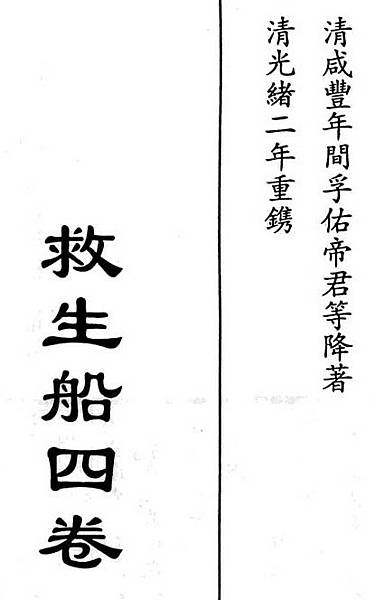 清咸豐年間孚佑帝君等降著
清光緒二年重鐫
救生船四卷